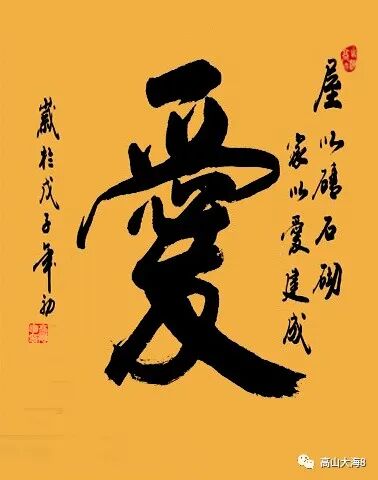 屋以磚石砌
家以愛建成
愛
於戊子年初
高山大海8